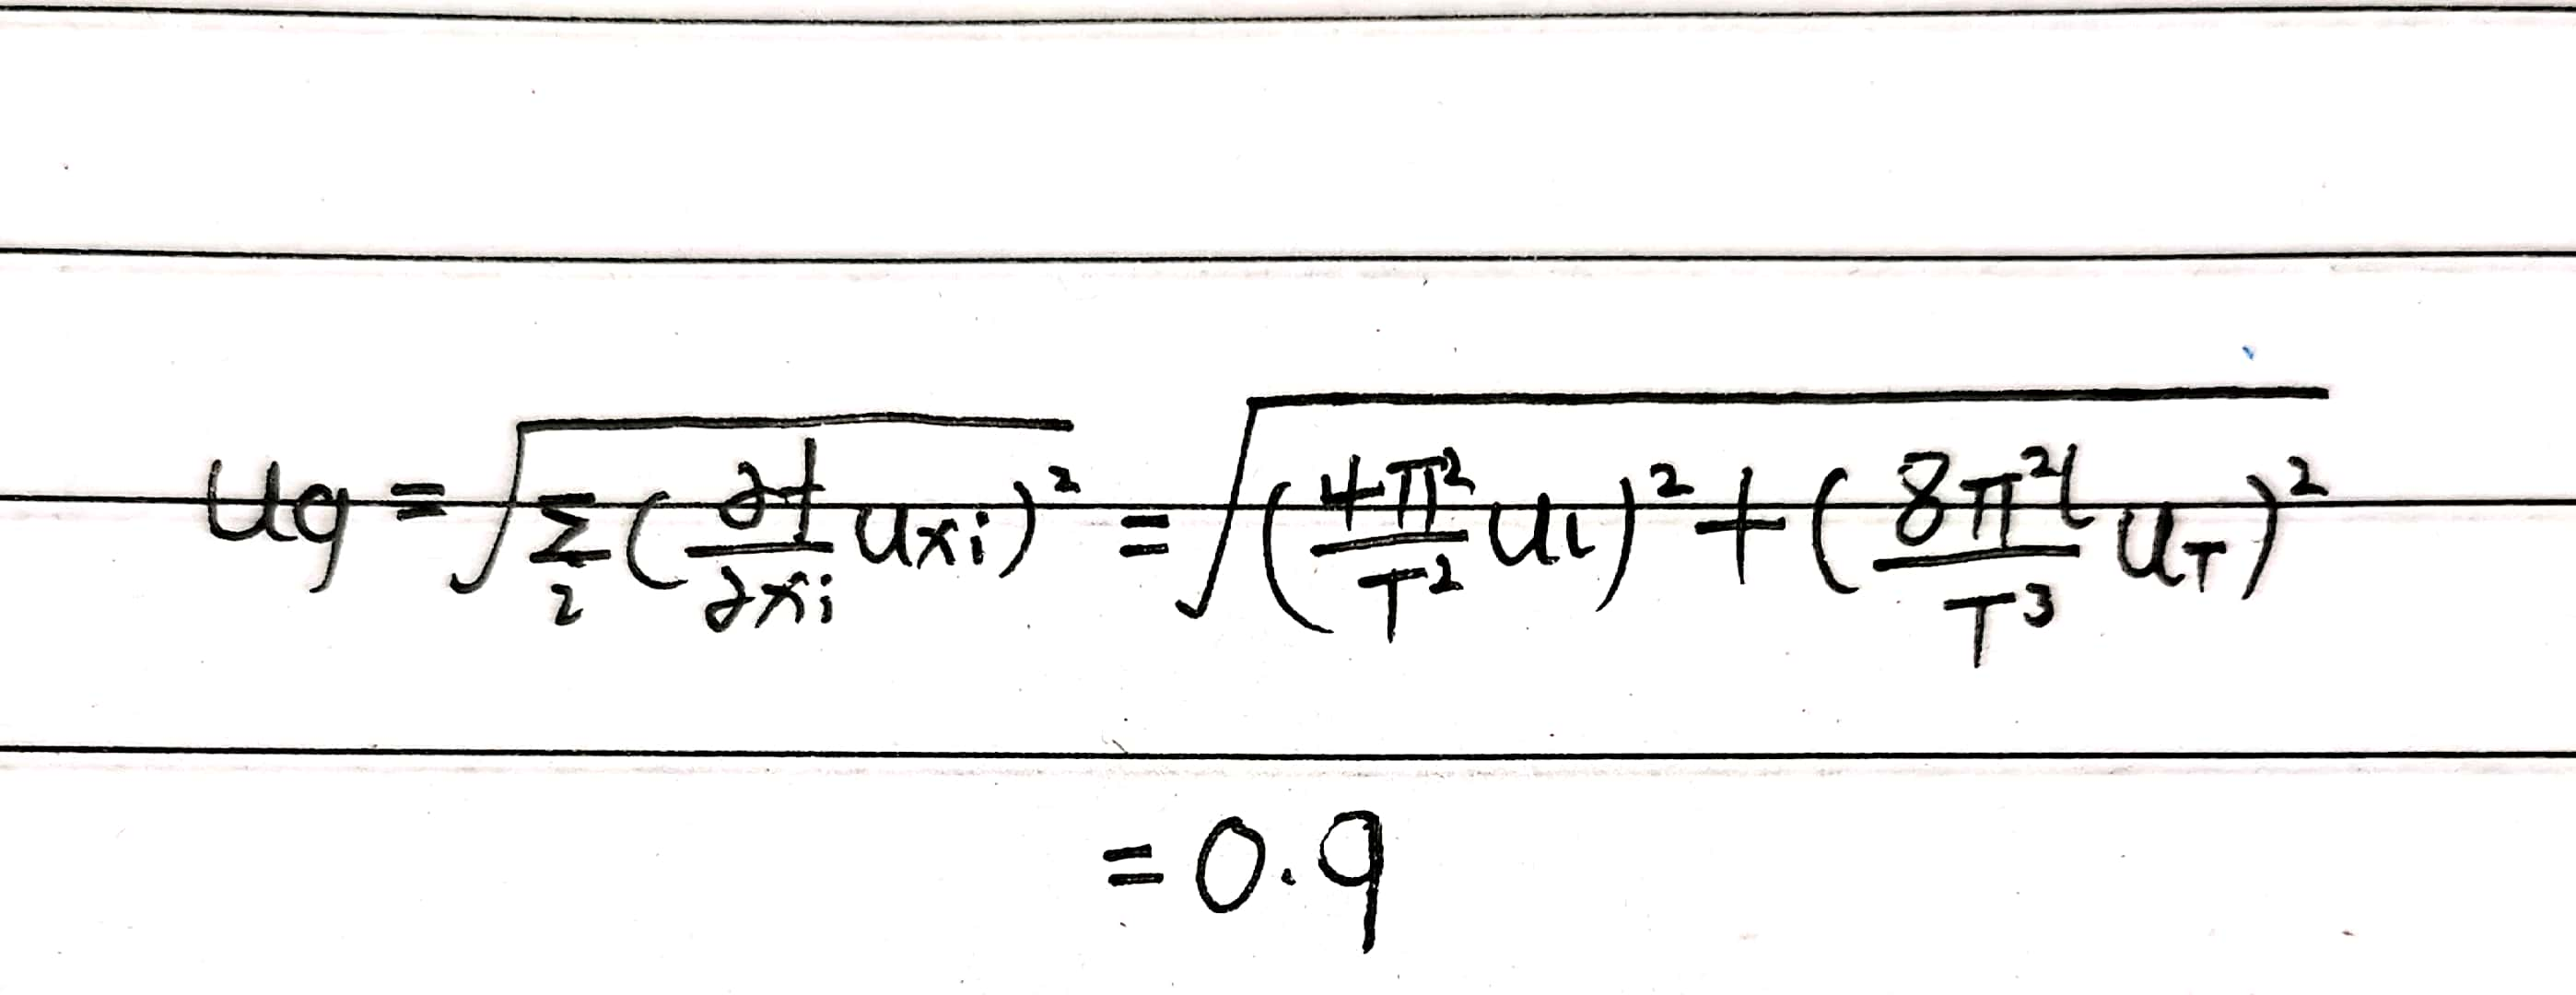 u_g = √(Σ_2 (∂f/∂x_i u_{x_i})²) = √((4π²/T² u_l)² + (8π²l/T³ u_T)²)
= 0.9